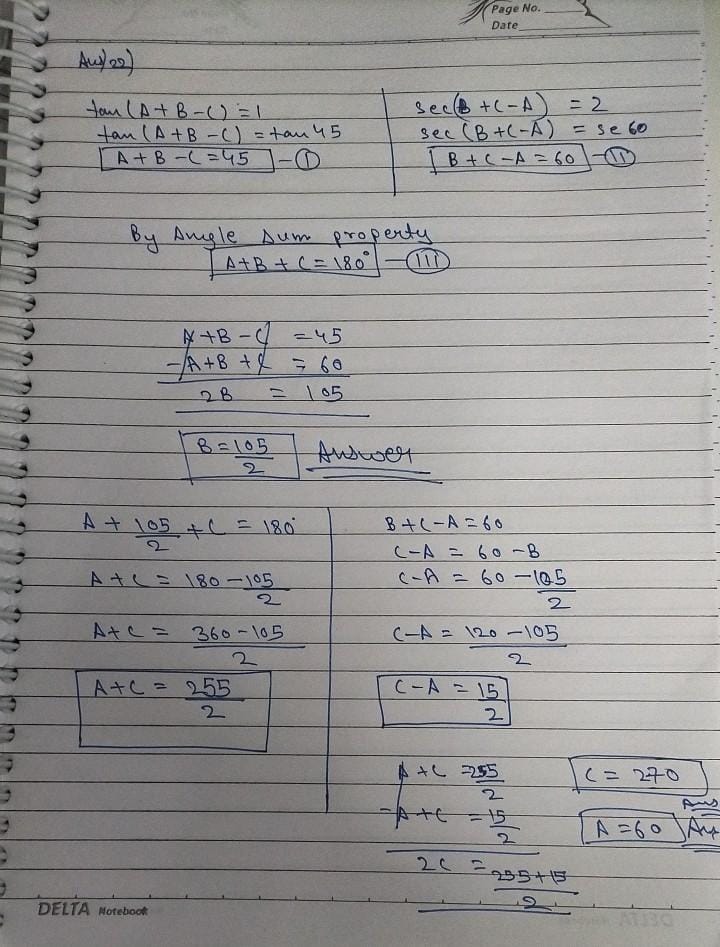 Page No.
Date
Ans/22)
tan(A+B-C) = 1
tan(A+B-C) = tan45
A+B-C=45 - I
sec(B+C-A) = 2
sec(B+C-A) = se 60
B+C-A=60 - II
By Angle sum property
A+B+C=180° - III
A+B-C = 45
-A+B+C = 60
2B = 105
B = 105/2 Answer
A + 105/2 + C = 180°
A+C = 180 - 105/2
A+C = 360-105/2
A+C = 255/2
B+C-A=60
C-A = 60-B
C-A = 60 - 105/2
C-A = 120-105/2
C-A = 15/2
A+C = 255/2
-A+C = 15/2
2C = 255+15/2
C = 270
Ans
A = 60 Ans
DELTA Notebook